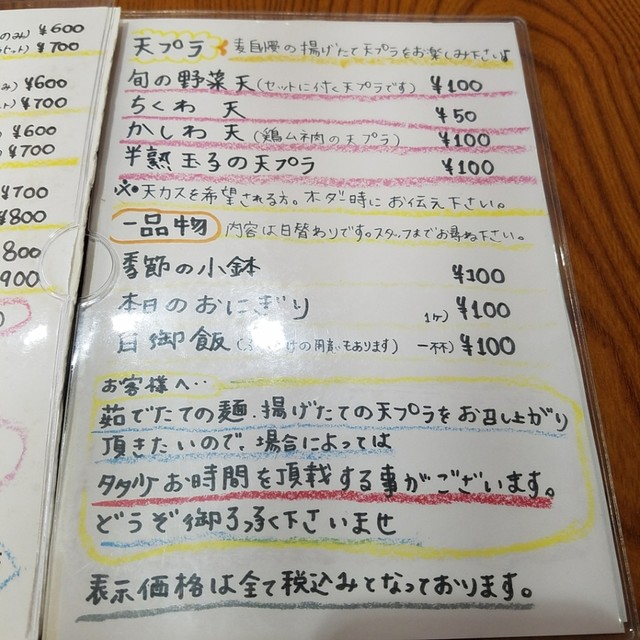 のみ) ¥600
セット) ¥700
み) ¥600
ト) ¥700
¥600
¥700
¥700
¥800
800
900
天プラ 麦自慢の揚げたて天プラをお楽しみ下さい♪
旬の野菜天(セットに付く天プラです) ¥100
ちくわ 天 ¥50
かしわ 天 (鶏ムネ肉の天プラ) ¥100
半熟玉子の天プラ ¥100
※天カスを希望される方。オーダー時にお伝え下さい。
一品物 内容は日替わりです。スタッフまでお尋ね下さい。
季節の小鉢 ¥100
本日のおにぎり 1ヶ) ¥100
白御飯(ふりかけの用意もあります) 一杯) ¥100
お客様へ‥
茹でたての麺、揚げたての天プラをお召し上がり
頂きたいので、場合によっては
多少お時間を頂戴する事がございます。
どうぞ御了承下さいませ
表示価格は全て税込みとなっております。